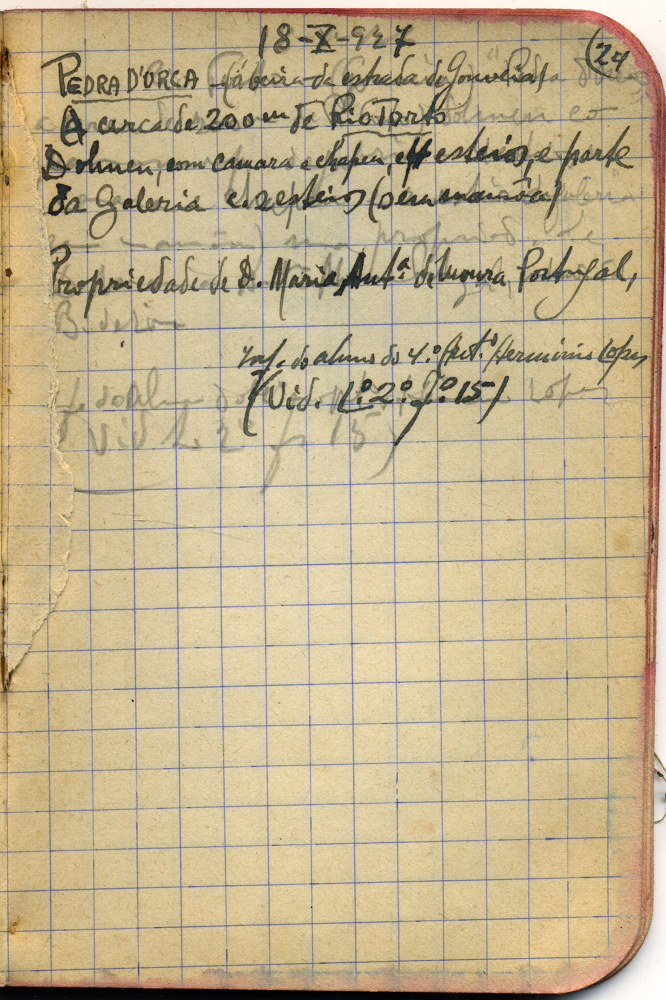 18-X-947
(24
PEDRA D'ORCA (á beira da estrada de Gouveia)
A cerca de 200m de Rio Torto
Dolmen, com camara e chapeu, esteios, e parte
da Galeria e 2 esteios (sem mamôa)
Propriedade de D. Maria Ant.ª de Moura Portugal,
Inf. do aluno do 4.º Ant.º Herminio Lopes
(Vid. L.º 2.º f.º 15)